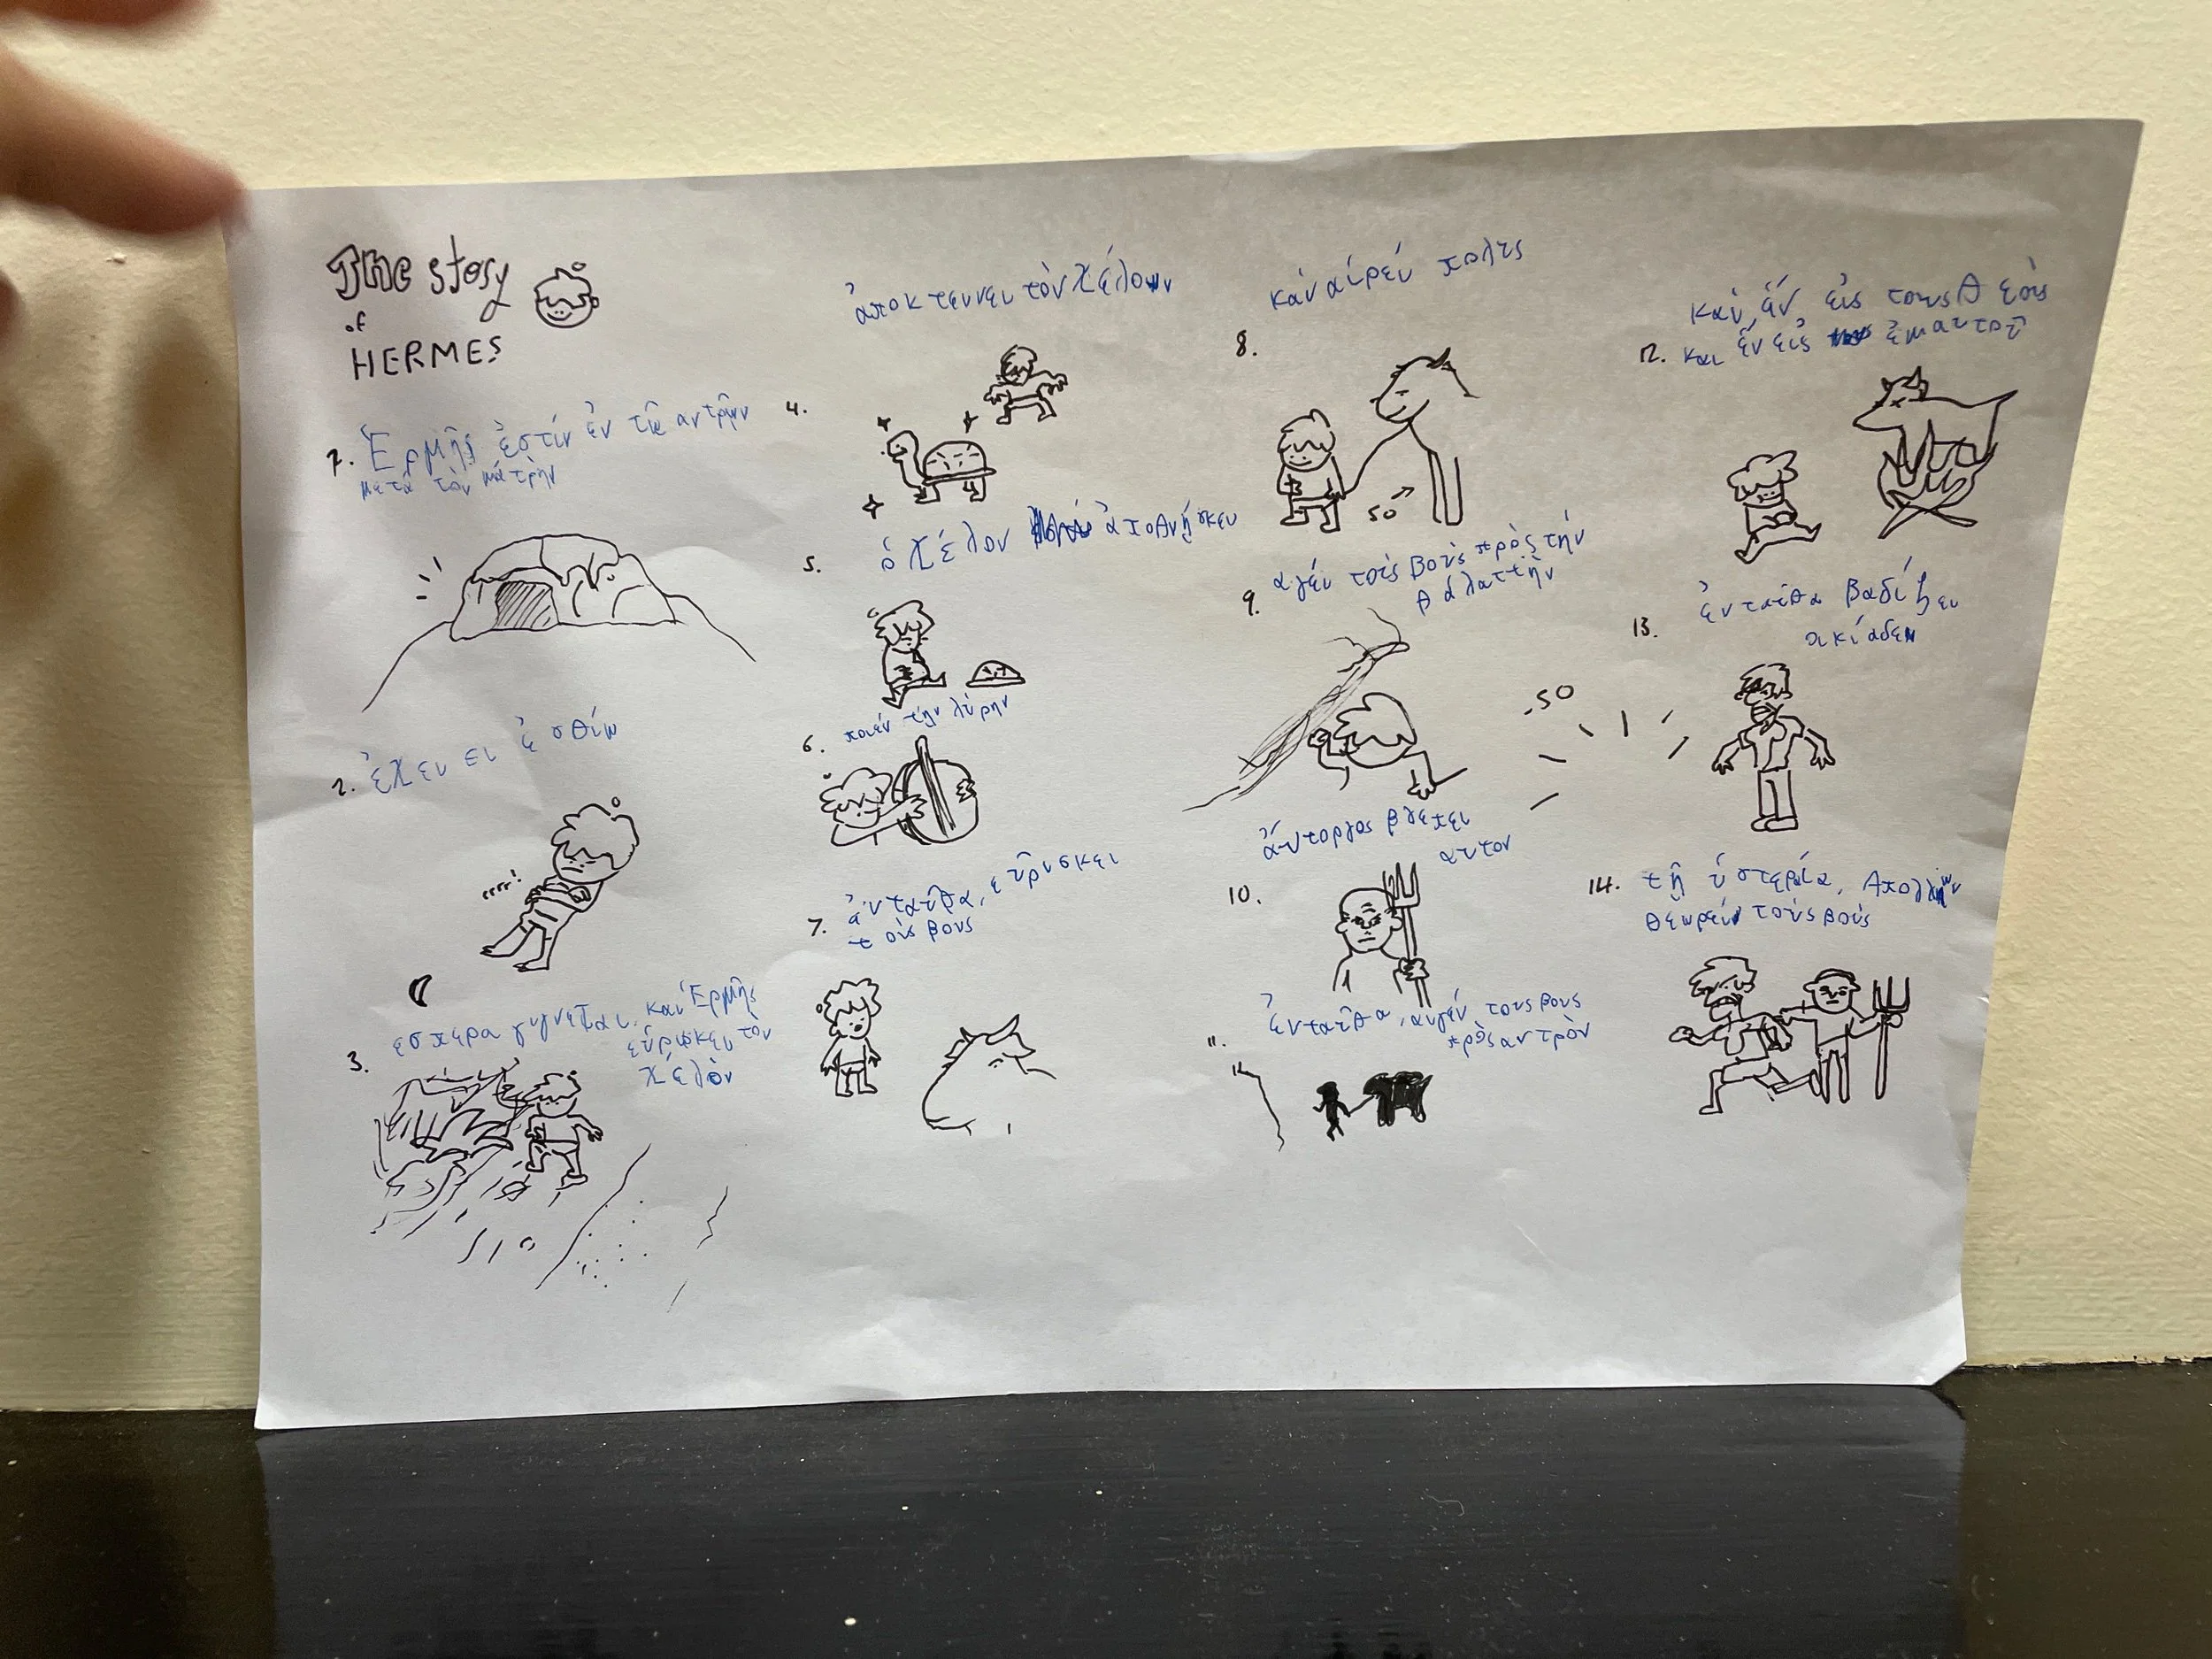 The story
of
HERMES
1. Ἑρμῆς ἐστίν ἐν τῷ αντρῳν
μετά τὸν μάτρην
2. ἐχει ει ἐσθίω
3. εσπερα γιγνεται, και Ἑρμῆς
εὑρισκει τὸν
χέλὸν
4. ἀποκτεννει τὸν χέλων
5. ὁ χέλον ἀποθνῄσκει
6. ποιεν τὴν λύρην
7. ἐνταῦθα, εὑρυσκει
τοὺς βους
8. καὶ αἱρεῖ πολὶς
9. αγεί τοὺς βοῦς πρὸς τήν
θάλαττὴν
10. ἀυτοργος βλεπει
αυτον
11. ἐνταῦθα, αγεί τους βους
πρὸς αντρὸν
12. και, ἕν, εἰς τους θεοὺς
και ἕν εἰς ἐμαυτοῦ
13. ἐνταῦθα βαδίζει
οικίαδεν
14. τῇ ὑστεραίᾳ, Απολλων
θεωρεῖ τοὺς βοῦς
50
-50